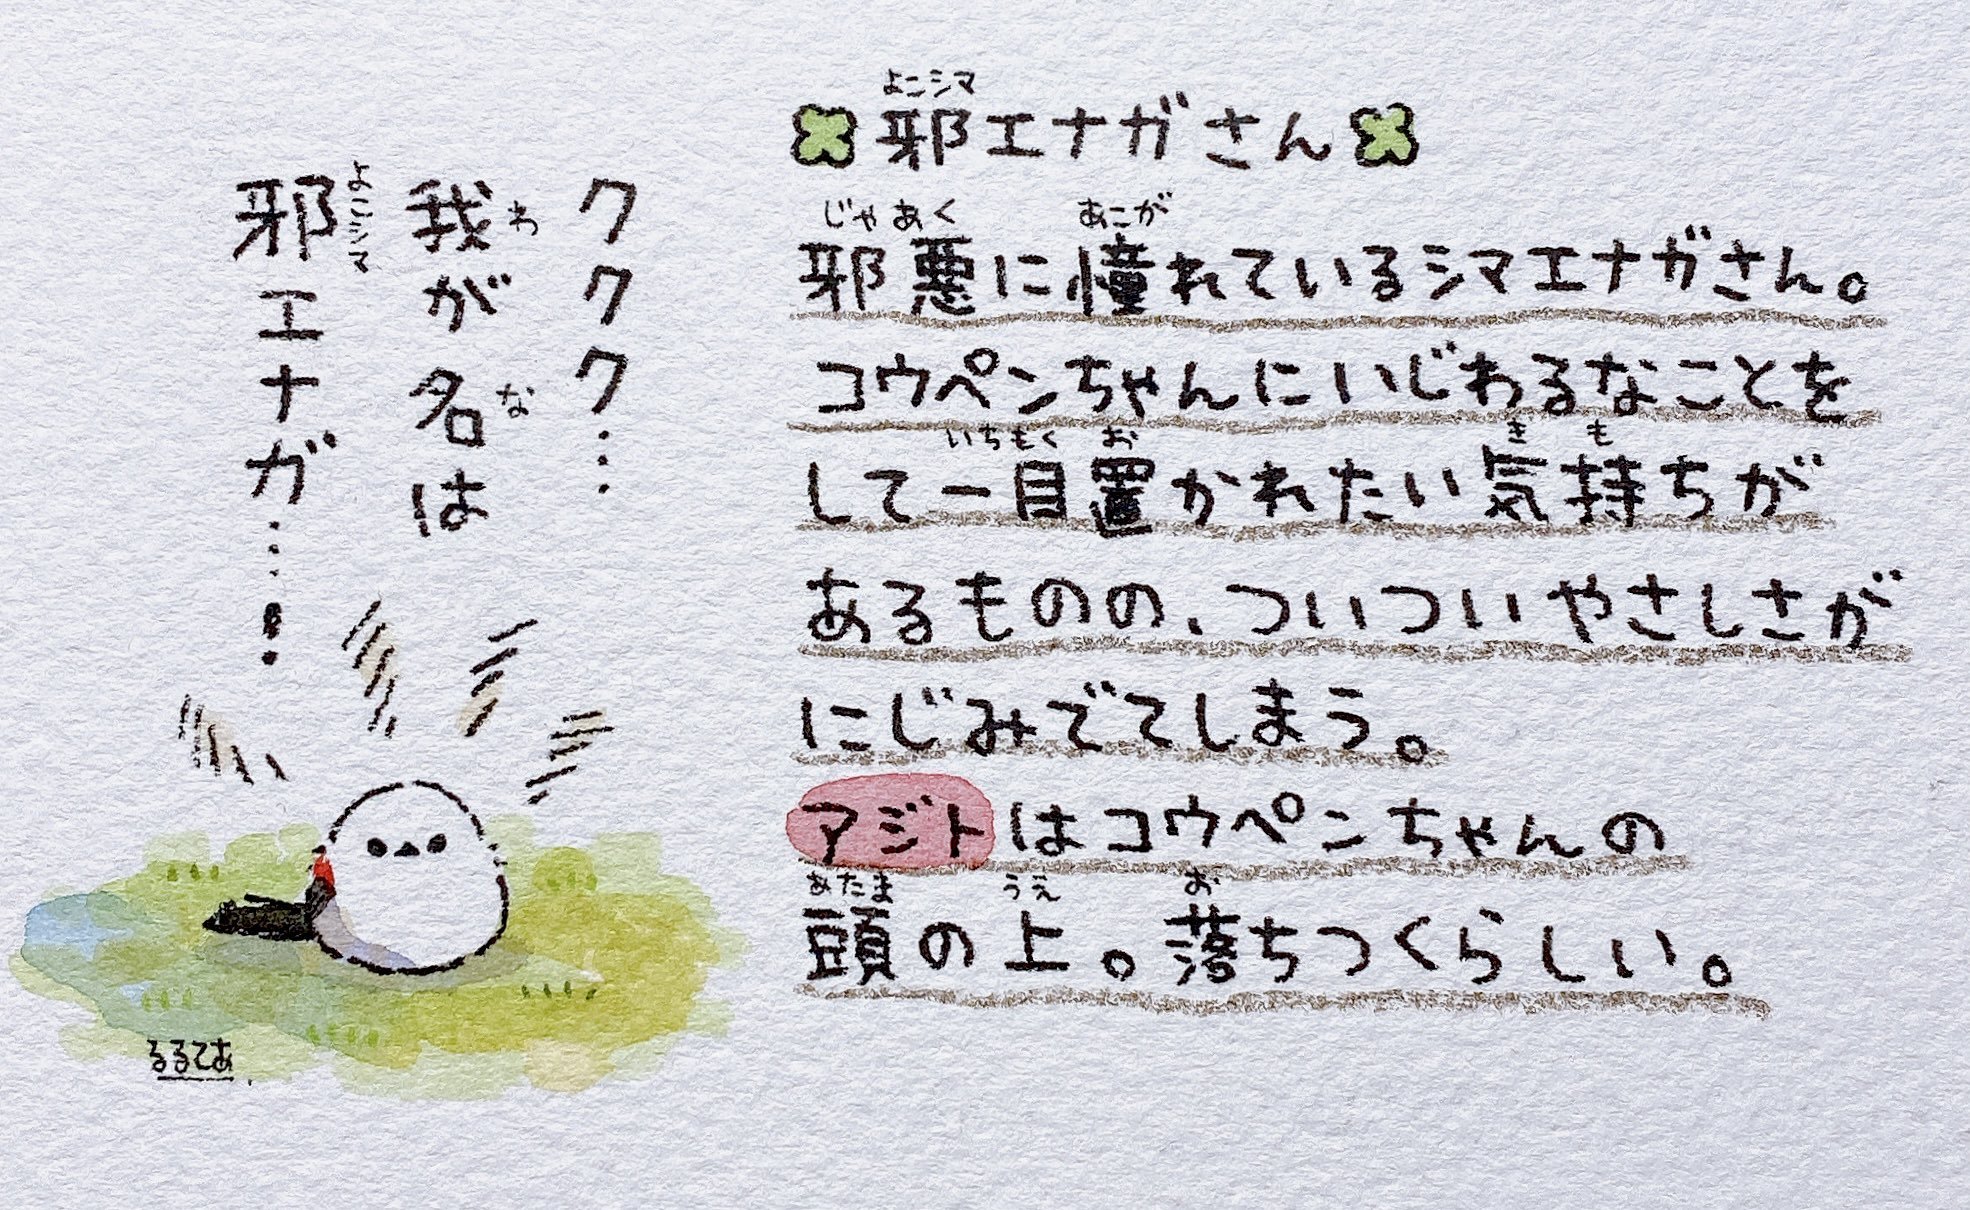 邪エナガさん
邪悪に憧れているシマエナガさん。
コウペンちゃんにいじわるなことを
して一目置かれたい気持ちが
あるものの、ついついやさしさが
にじみでてしまう。
アジトはコウペンちゃんの
頭の上。落ちつくらしい。
ククク…
我が名は
邪エナガ……!
るるてあ